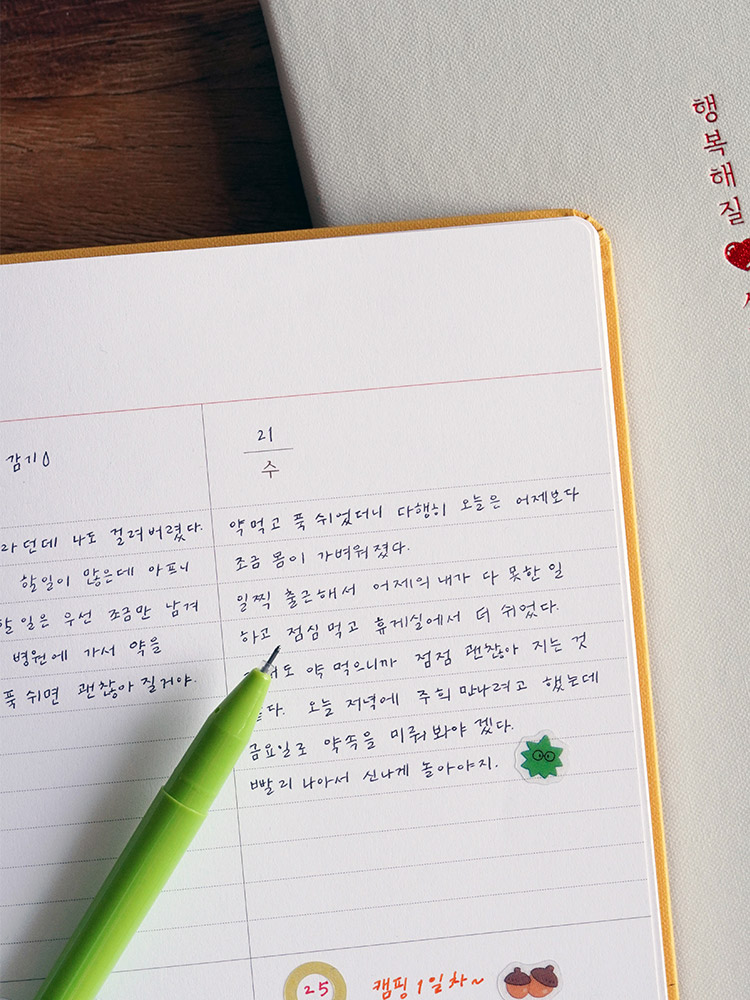 행복해질
감기
라던데 나도 걸려버렸다.
할일이 많은데 아프니
할일은 우선 조금만 남겨
병원에 가서 약을
푹 쉬면 괜찮아질거야.
21
수
약먹고 푹 쉬었더니 다행히 오늘은 어제보다
조금 몸이 가벼워졌다.
일찍 출근해서 어제의 내가 다 못한 일
하고 점심먹고 휴게실에서 더 쉬었다.
약 먹으니까 점점 괜찮아 지는 것
오늘 저녁에 주희 만나려고 했는데
금요일로 약속을 미뤄봐야겠다.
빨리 나아서 신나게 놀아야지.
25
캠핑 1일차~